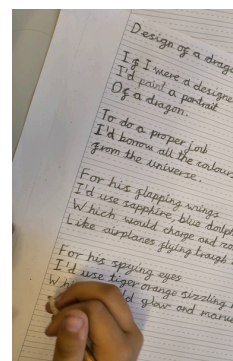 Design of a drag
If I were a designe
I'd paint a portrait
Of a dragon.
To do a proper job
I'd borrow all the colours
from the universe.
For his flapping wings
I'd use sapphire, blue dolph
Which would charge and
Like airplanes flying trough
For his spying eyes
I'd use tiger orange sizzling
glow and